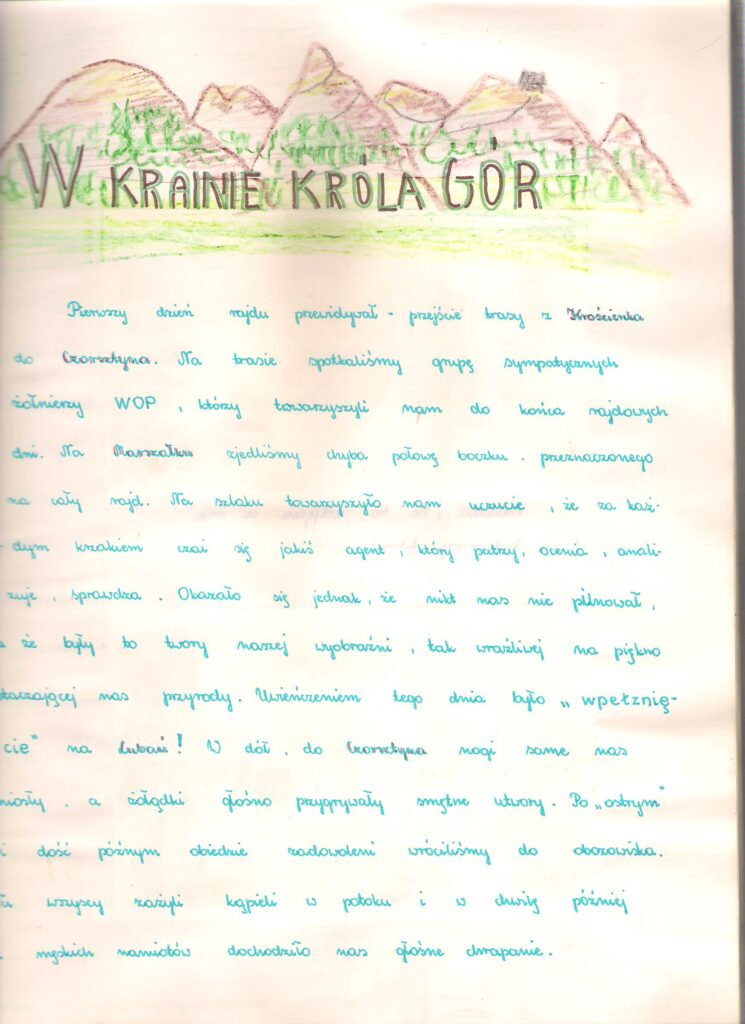 W KRAINIE KRÓLA GÓR
Pierwszy dzień rajdu przewidywał - przejście trasy z Krościenka
do Czorsztyna. Na trasie spotkaliśmy grupę sympatycznych
żołnierzy WOP, którzy towarzyszyli nam do końca rajdowych
dni. Na Marszałku zjedliśmy chyba połowę boczku, przeznaczonego
na cały rajd. Na szlaku towarzyszyło nam uczucie, że za każ-
dym krzakiem czai się jakiś agent, który patrzy, ocenia, anali-
zuje, sprawdza. Okazało się jednak, że nikt nas nie pilnował,
że były to twory naszej wyobraźni, tak wrażliwej na piękno
taczającej nas przyrody. Uwieńczeniem tego dnia było „wpełznię-
cie" na Lubań! W dół, do Czorsztyna nogi same nas
niosły, a żołądki głośno przygrywały smętne utwory. Po „ostrym"
i dość późnym obiedzie zadowoleni wróciliśmy do obozowiska.
wszyscy zażyli kąpieli w potoku i w chwilę później
męskich namiotów dochodziło nas głośne chrapanie.